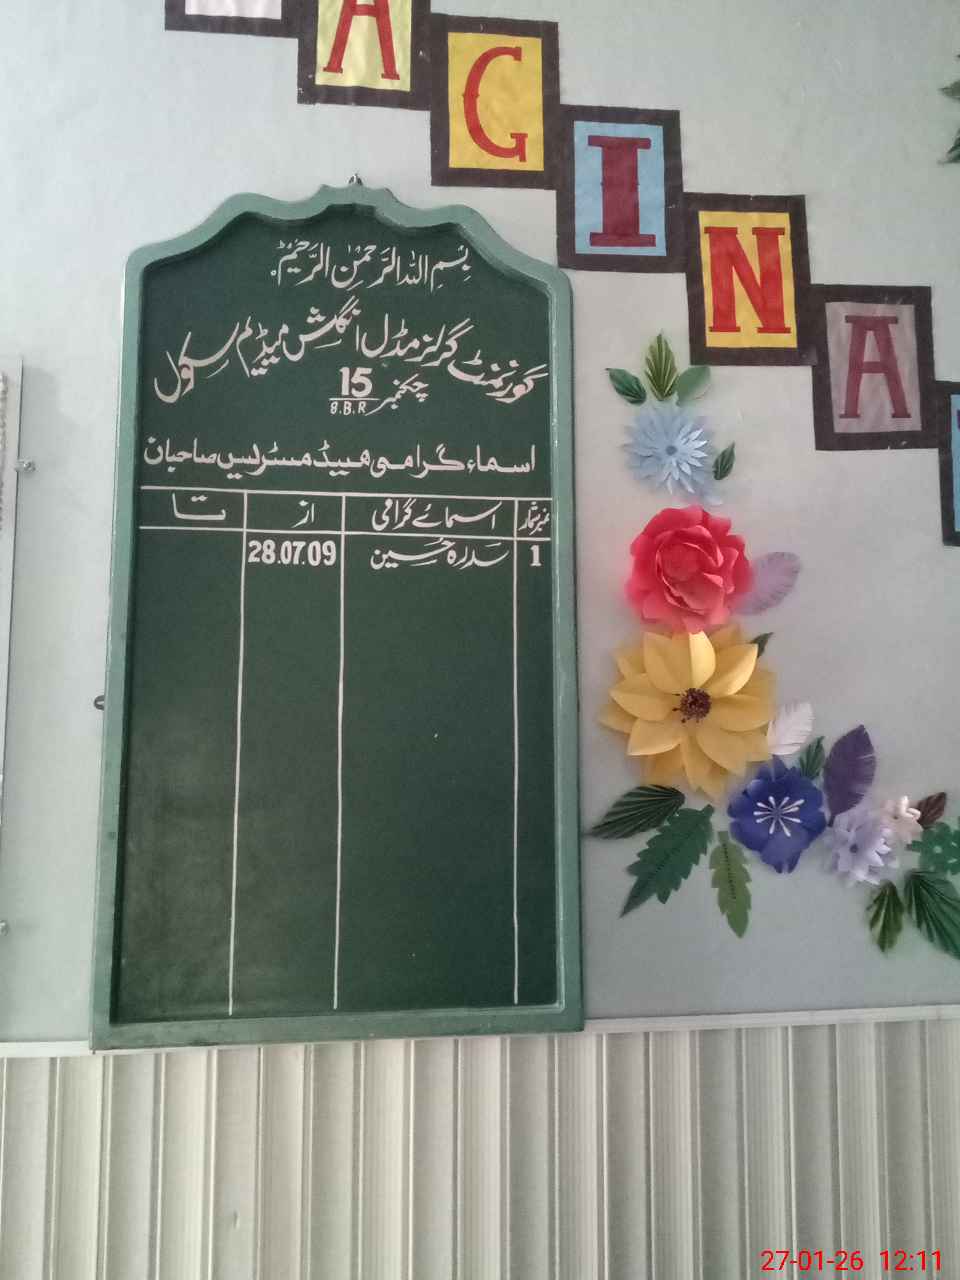 A
G
I
N
A
بِسْمِ اللہِ الرَّحْمٰنِ الرَّحِیْمْ
گورنمنٹ گرلز مڈل انگلش میڈیم سکول
چکنمبر 15/8.B.R
اسماء گرامی ھیڈ مسٹریس صاحبان
نمبر شمار اسمائے گرامی از تا
1 سدرہ حُسین 28.07.09
27-01-26 12:11